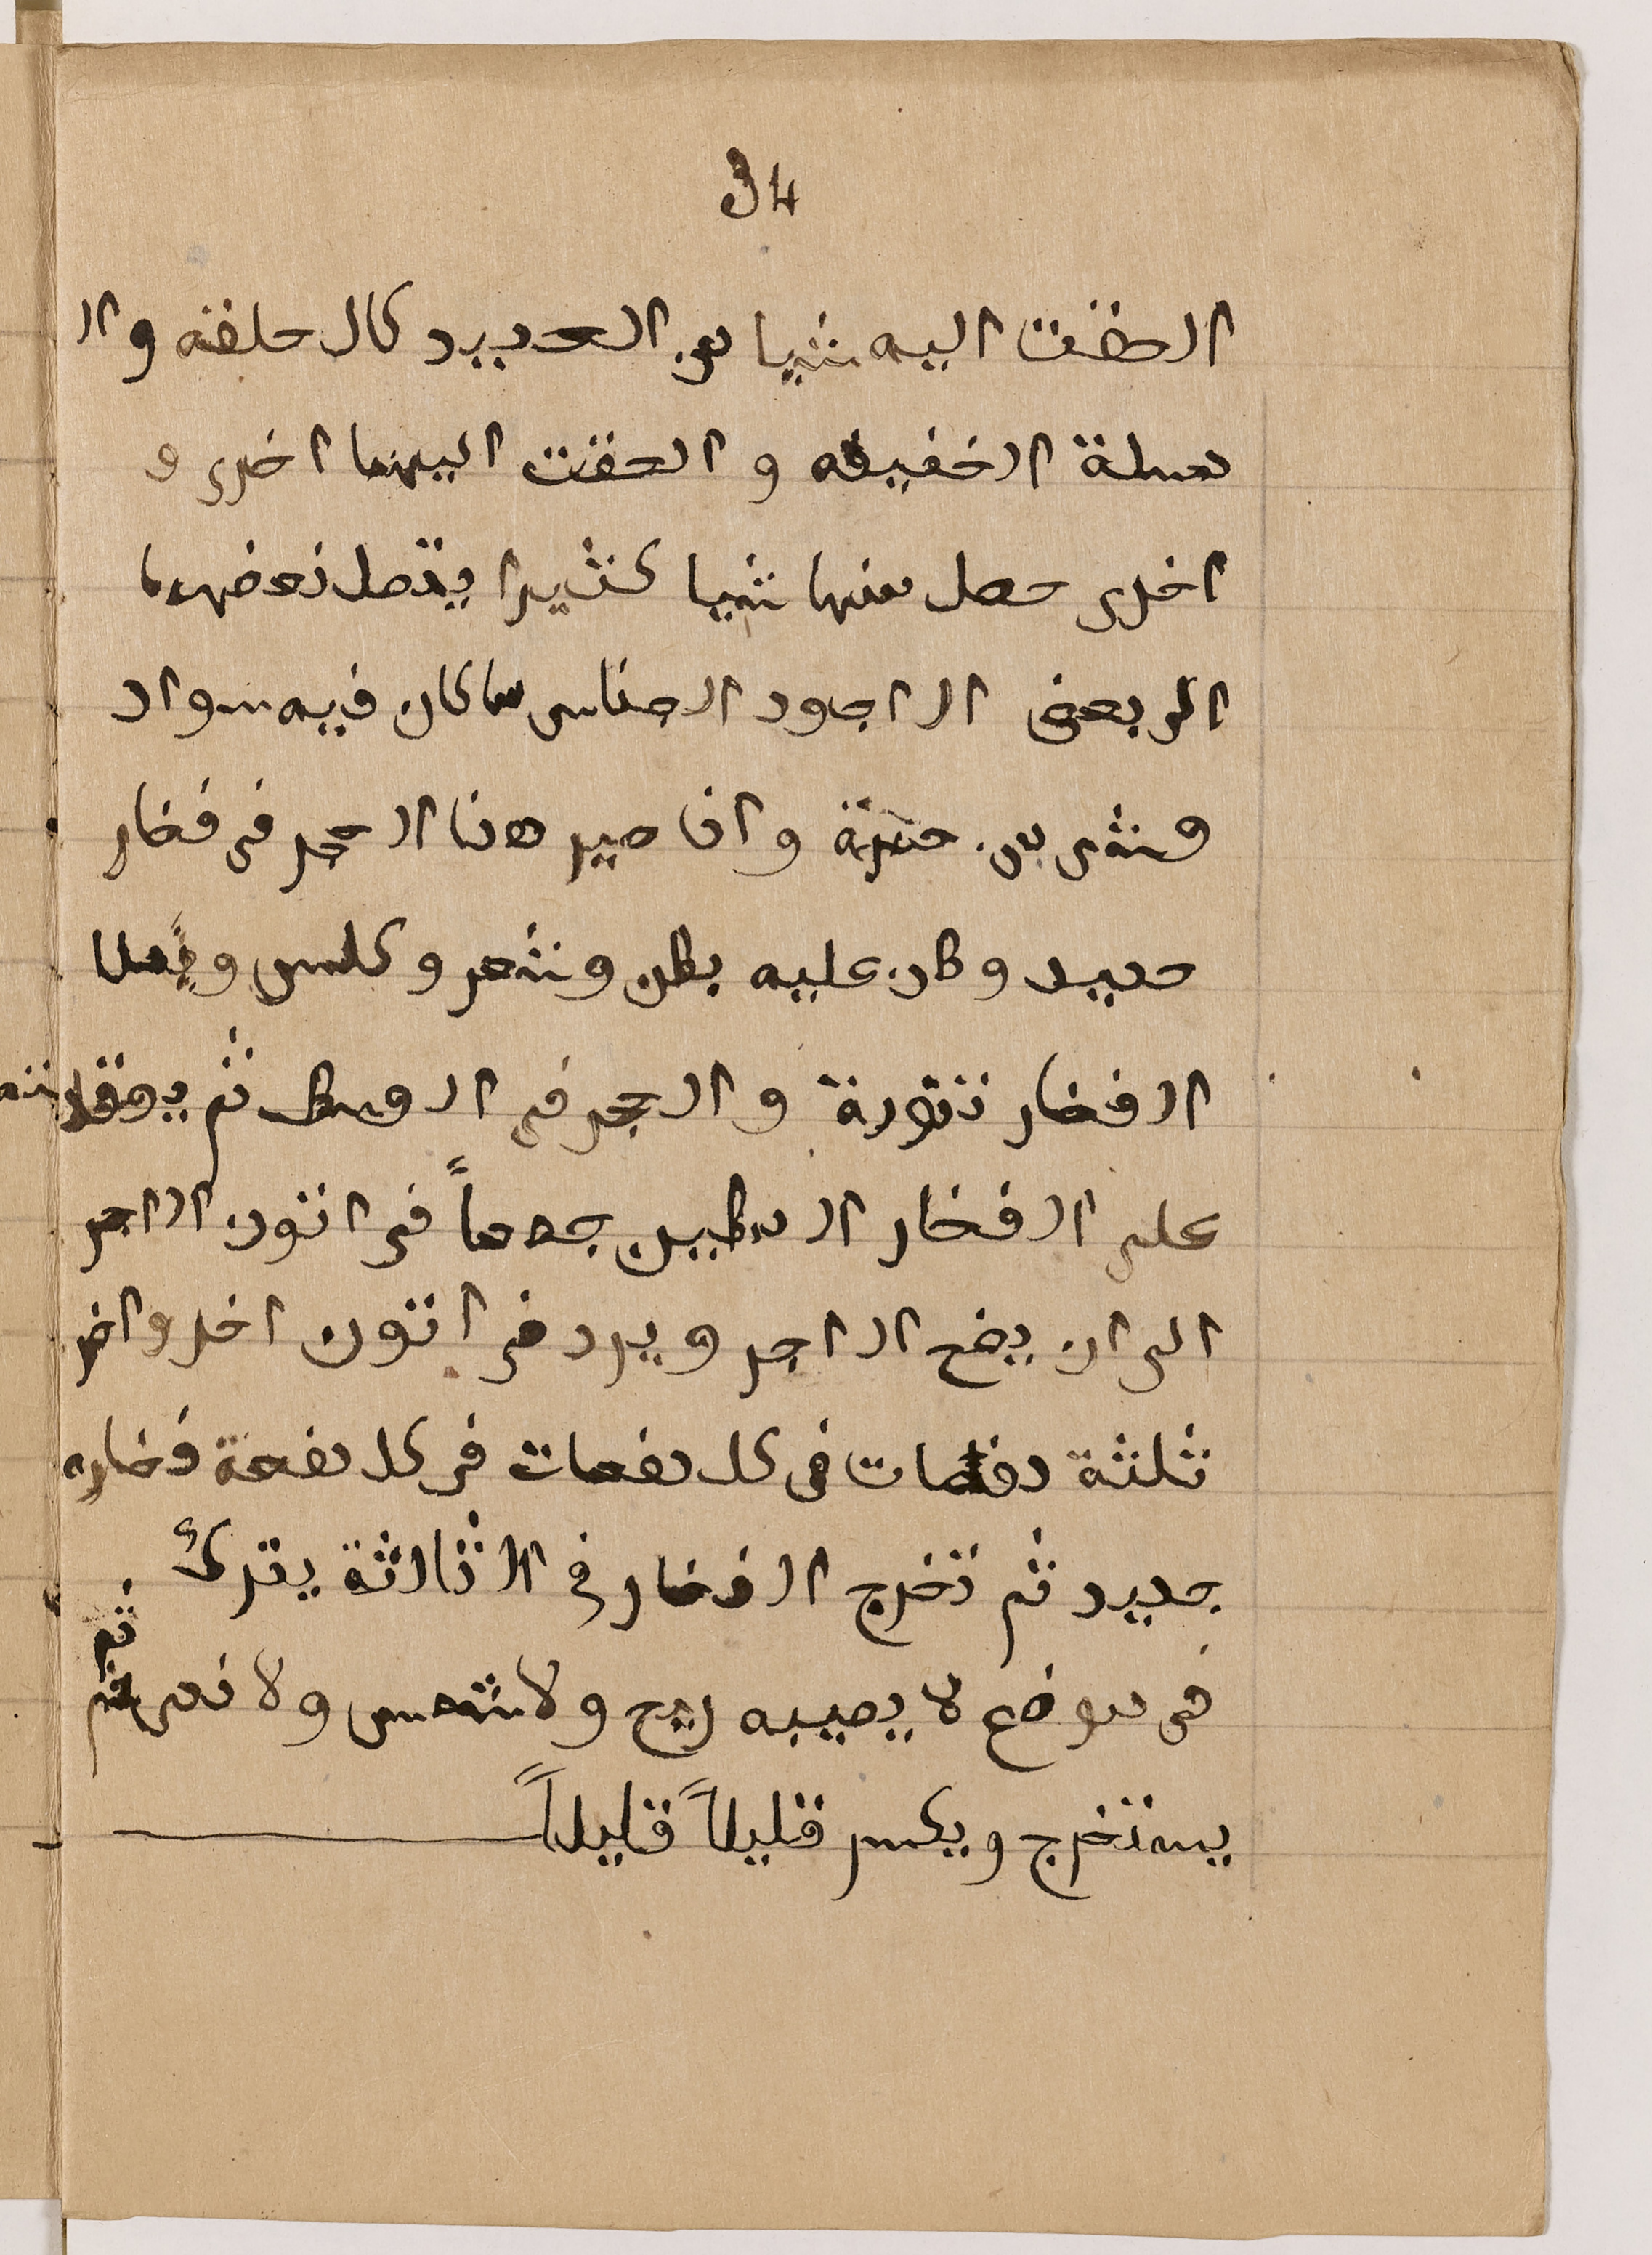 34
الصقت اليه شيا من الحديد كالحلقه وال
مسلة الخفيفه و الحقت اليهما اخرى و
اخرى حصل منها شيا كثيرا يتصل بعضهما
الى بعض الاجود الاجناس ما كان فيه سواد
وشى من حمرة واذا صير هذا الحجر فى فخار
جديد وكان عليه بطن وشعر وكلس ويملا
الفخار نورة والحجر فى الوسط ثم يوقد
على الفخار الطين جمعاً فى اتون الاجر
الى ان يضح الاجر ويرد فى اتون اخر واخر
ثلثة دفعات فى كل دفعات فى كل دفعة فخاره
جديد ثم تخرج الفخار فى الثالثة يترك
فى موضع لا يصيبه ريح ولا شمس ولا ندى ثم
يستخرج ويكسر قليلاً قليلاً